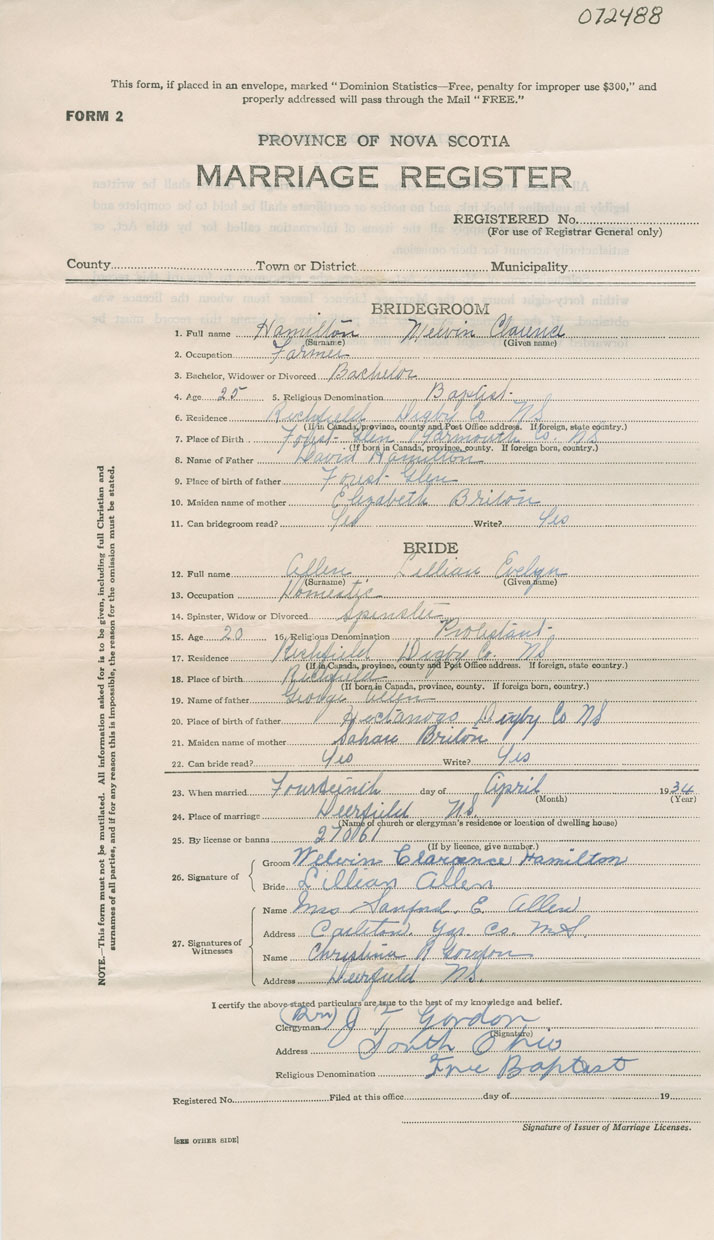 072488
This form, if placed in an envelope, marked "Dominion Statistics—Free, penalty for improper use $300," and
properly addressed will pass through the Mail "FREE."
FORM 2
PROVINCE OF NOVA SCOTIA
MARRIAGE REGISTER
REGISTERED No.
(For use of Registrar General only)
County Town or District Municipality
BRIDEGROOM
1. Full name Hamilton Melvin Clarence
(Surname) (Given name)
2. Occupation Farmer
3. Bachelor, Widower or Divorced Bachelor
4. Age 25 5. Religious Denomination Baptist
6. Residence Richfield Digby Co NS
(If in Canada, province, county and Post Office address. If foreign, state country.)
7. Place of Birth Forest Glen Yarmouth Co. NS
(If born in Canada, province, county. If foreign born, country.)
8. Name of Father David Hamilton
9. Place of birth of father Forest Glen
10. Maiden name of mother Elizabeth Briton
11. Can bridegroom read? Yes Write? Yes
BRIDE
12. Full name Allen Lillian Evelyn
(Surname) (Given name)
13. Occupation Domestic
14. Spinster, Widow or Divorced Spinster
15. Age 20 16. Religious Denomination Protestant
17. Residence Richfield Digby Co. NS
(If in Canada, province, county and Post Office address. If foreign, state country.)
18. Place of birth Richfield
(If born in Canada, province, county. If foreign born, country.)
19. Name of father George Allen
20. Place of birth of father Digby Co NS
21. Maiden name of mother Briton
22. Can bride read? Yes Write? Yes
23. When married Fourteinth day of April 1934
(Month) (Year)
24. Place of marriage Deerfield NS.
(Name of church or clergyman's residence or location of dwelling house)
25. By license or banns 27061
(If by licence, give number.)
26. Signature of
Groom Melvin Clarence Hamilton
Bride Lillian Allen
27. Signatures of Witnesses
Name Mrs Sanford. E. Allen
Address Carleton. Yar. Co. N.S.
Name Christina A Gordon
Address Deerfield NS.
I certify the above-stated particulars are true to the best of my knowledge and belief.
Clergyman J T Gordon
(Signature)
Address South Ohio
Religious Denomination Free Baptist
Registered No. Filed at this office day of 19
Signature of Issuer of Marriage Licenses.
[SEE OTHER SIDE]
NOTE.—This form must not be mutilated. All information asked for is to be given, including full Christian and
surnames of all parties, and if for any reason this is impossible, the reason for the omission must be stated.